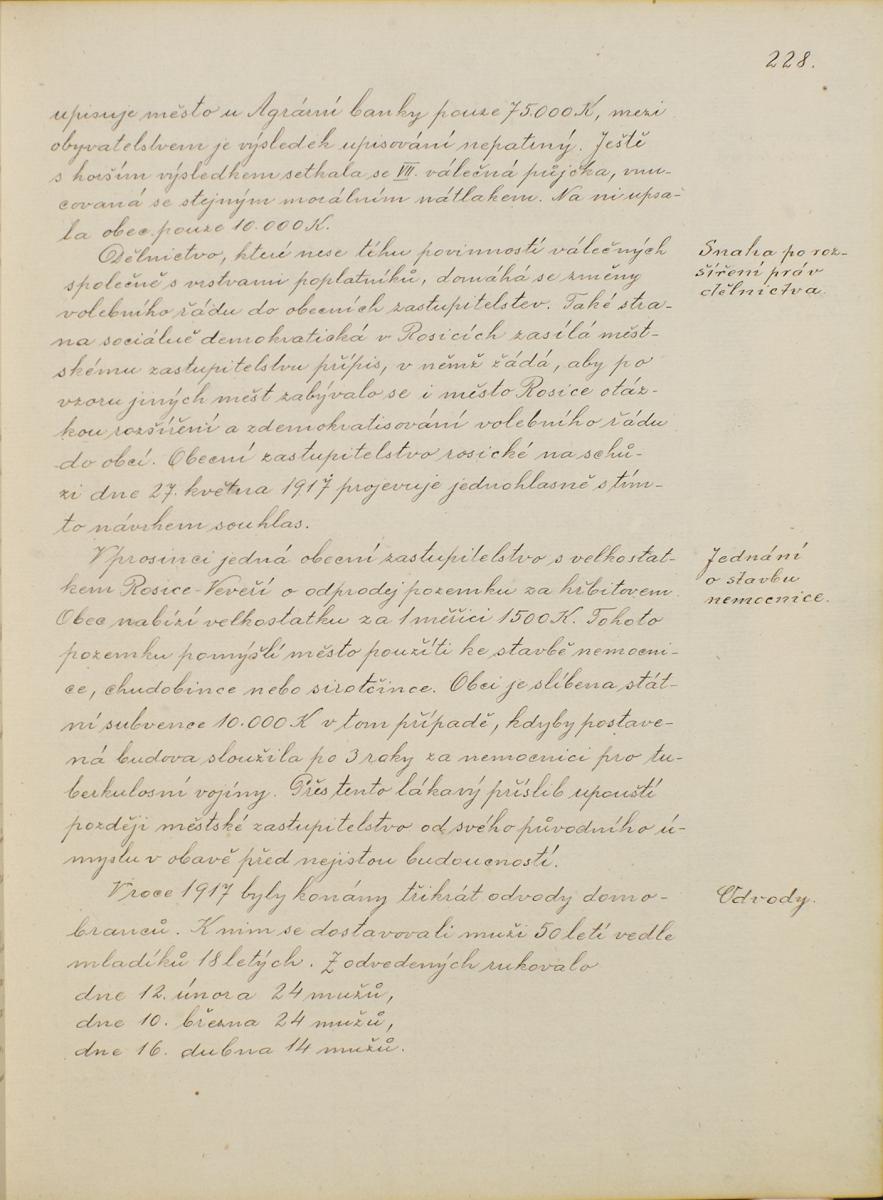 228.
upisuje město u Agrární banky pouze 75.000 K, mezi
obyvatelstvem je výsledek upisování nepatrný. Ještě
s horším výsledkem setkala se VII. válečná půjčka, vnu-
covaná se stejným morálním nátlakem. Na ni upsa-
la obec pouze 10.000 K.
Dělnictvo, které nese tíhu povinností válečných
společně s vrstvami poplatníků, domáhá se změny
volebního řádu do obecních zastupitelstev. Také stra-
na sociálně demokratická v Rosicích zasílá měst-
skému zastupitelstvu přípis, v němž žádá, aby po
vzoru jiných měst zabývalo se i město Rosice otáz-
kou rozšíření a zdemokratisování volebního řádu
do obcí. Obecní zastupitelstvo rosické na schů-
zi dne 27. května 1917 projevuje jednohlasně s tím-
to návrhem souhlas.
Snaha po roz-
šíření práv
dělnictva.
V prosinci jedná obecní zastupitelstvo s velkostat-
kem Rosice-Veveří o odprodej pozemku za hřbitovem.
Obec nabízí velkostatku za 1 měřici 1500 K. Tohoto
pozemku pomýšlí město použíti ke stavbě nemocni-
ce, chudobince nebo sirotčince. Obci je slíbena stát-
ní subvence 10.000 K v tom případě, kdyby postave-
ná budova sloužila po 3 roky za nemocnici pro tu-
berkulosní vojíny. Přes tento lákavý příslib upouští
později městské zastupitelstvo od svého původního ú-
myslu v obavě před nejistou budoucností.
Jednání
o stavbu
nemocnice.
V roce 1917 byly konány třikrát odvody domo-
branců. K nim se dostavovali muži 50 letí vedle
mladíků 18 letých. Z odvedených rukovalo
dne 12. února 24 mužů,
dne 10. března 24 mužů,
dne 16. dubna 14 mužů.
Odvody.